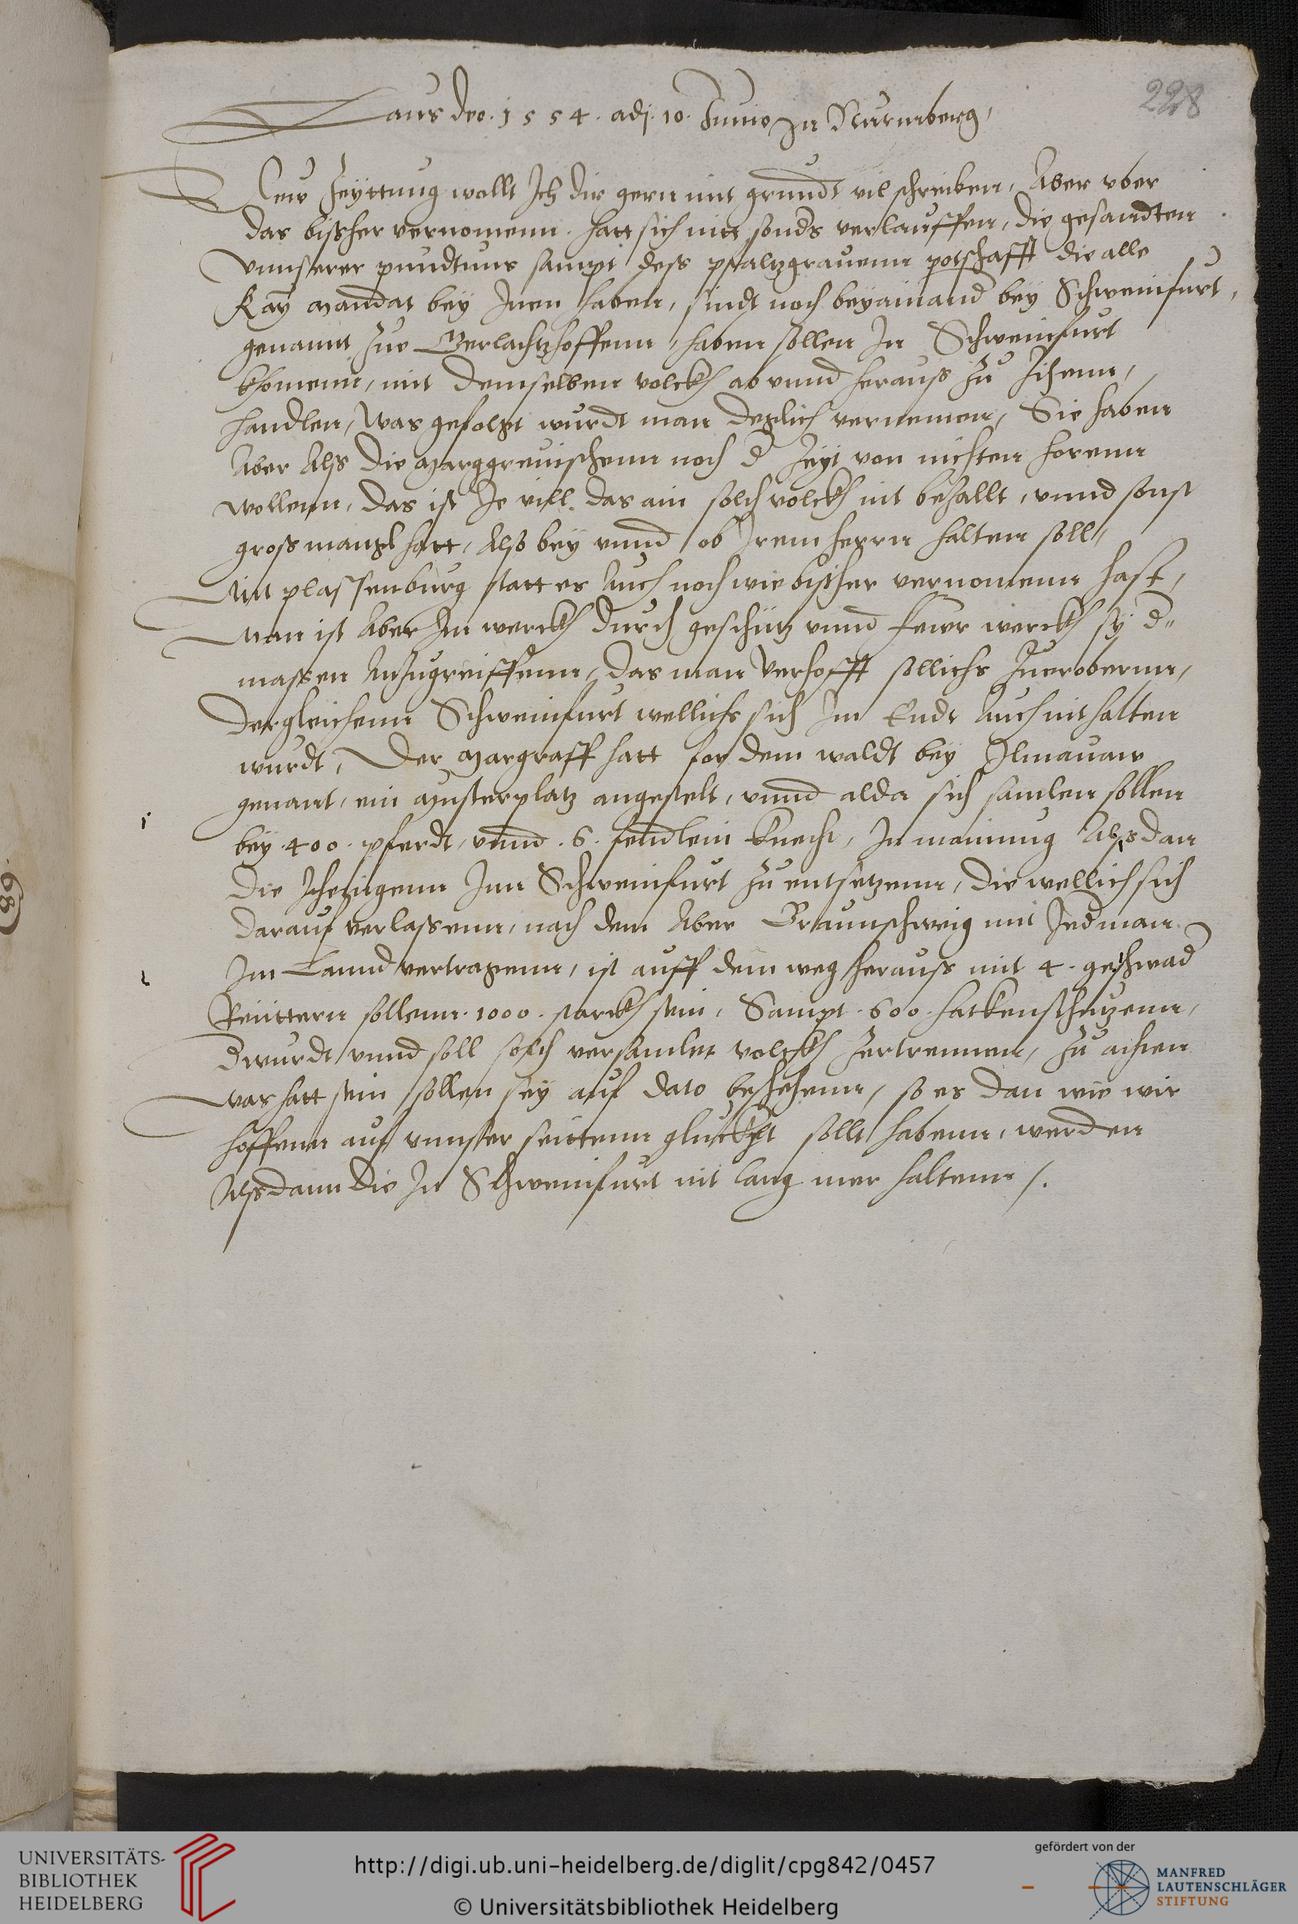 228
Laus deo. 1554. adj. 10. Junio In Nurmberg,
New Zeyttung wollt Ich dir gern mit grundt vil schreiben, Aber vber
das bißher vernomenn. hatt sich nitt sonds verlauffen, die gesandten
vnnserer pundtnus sampt dess pfaltzgrauenn potschafft die alle
Kay Mandat bey Inen haben, sindt noch beyainand bey Schweinfurt,
genannt zue Gerlachtzhoffenn, haben sollen In Schweinfurt
khomenn, mit demselben volckh ab vnnd herauss zu ziehenn,
handlen, Was gefolgt wurdt man deglich vernemen, Sie haben
Aber Alß die Marggreuischenn noch d Zeyt von nichten horenn
wollenn, das ist Je vill. das ain solch volckh nit bezallt, vnnd sonst
gross mangl hatt, Also bey vnnd ob Irem herrn halten soll,
Mit plassenburg statt es Auch noch wie bißher vernomenn hast,
Man ist Aber Im werckh durch geschütz vnnd fewr werckh sy d
massen Anzugreiffenn, das man Verhofft sollichs Zueroberenn,
dergleichenn Schweinfurt wellichs sich Im Endt Auch nit halten
wurdt, Der Margraff hatt for dem waldt bey Ilmauaw
genant, ein Musterplatz angestelt, vnnd alda sich samlen sollen
bey .400. pferdt, vnnd .6. fendlein knecht, In mainung Alßdan
die Ihenigenn Inn Schweinfurt zu entsetzenn, die wellich sich
darauf verlassenn, nach dem Aber Braunschweig mit Jedman
Im Lannd vertragenn, ist auff dem weg herauss mit 4. geschwad
Reiittern sollenn .1000. starckh sein, Sampt .600. hackenschutzenn,
Dwurdt vnnd soll solch versamlet volckh Zertrennen, zu achten
was hatt sein sollen sey auf dato beschehenn, so es dan wie wir
hoffenn auf vnnser seittenn gluckht sollt habenn, werden
Alßdann die In Schweinfurt nit lang mer haltenn /.
68
UNIVERSITÄTS-
BIBLIOTHEK
HEIDELBERG
http://digi.ub.uni-heidelberg.de/diglit/cpg842/0457
© Universitätsbibliothek Heidelberg
gefördert von der
MANFRED
LAUTENSCHLÄGER
STIFTUNG